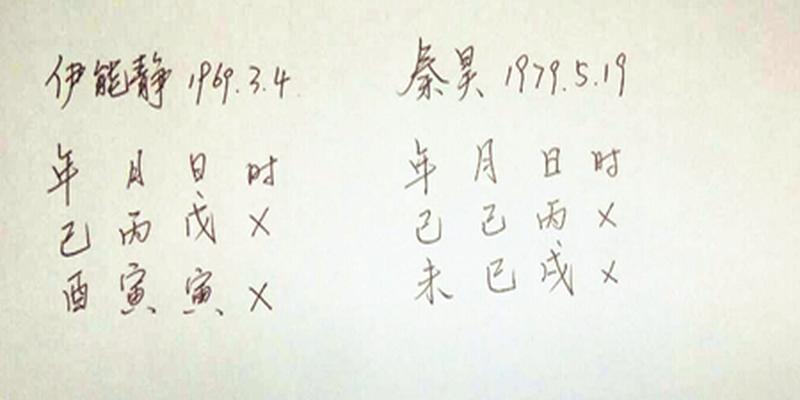 伊能静 1969.3.4 秦昊 1979.5.19
年 月 日 时 年 月 日 时
己 丙 戊 X 己 己 丙 X
酉 寅 寅 X 未 巳 戌 X